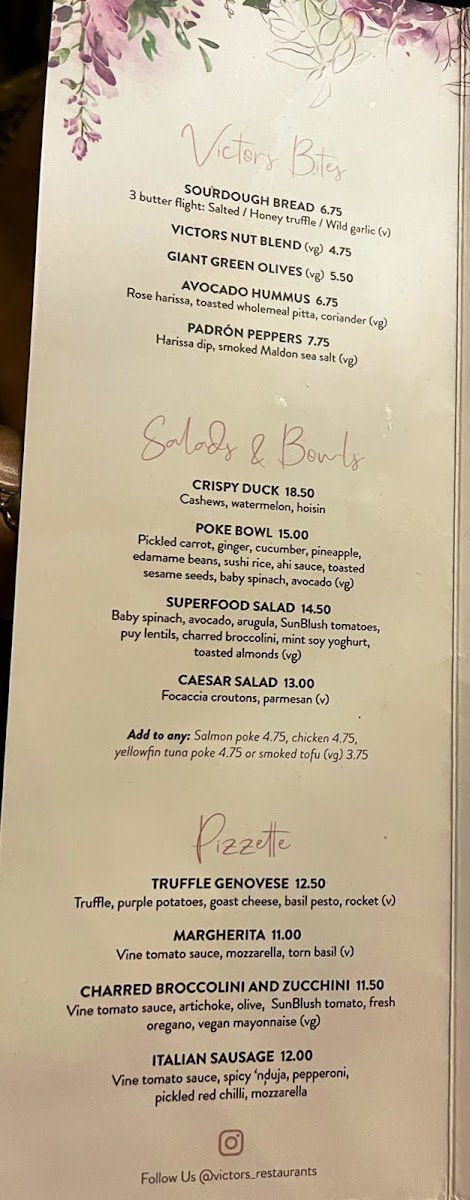 Victors Bites
SOURDOUGH BREAD 6.75
3 butter flight: Salted / Honey truffle / Wild garlic (v)
VICTORS NUT BLEND (vg) 4.75
GIANT GREEN OLIVES (vg) 5.50
AVOCADO HUMMUS 6.75
Rose harissa, toasted wholemeal pitta, coriander (vg)
PADRÓN PEPPERS 7.75
Harissa dip, smoked Maldon sea salt (vg)
Salads & Bowls
CRISPY DUCK 18.50
Cashews, watermelon, hoisin
POKE BOWL 15.00
Pickled carrot, ginger, cucumber, pineapple,
edamame beans, sushi rice, ahi sauce, toasted
sesame seeds, baby spinach, avocado (vg)
SUPERFOOD SALAD 14.50
Baby spinach, avocado, arugula, SunBlush tomatoes,
puy lentils, charred broccolini, mint soy yoghurt,
toasted almonds (vg)
CAESAR SALAD 13.00
Focaccia croutons, parmesan (v)
Add to any: Salmon poke 4.75, chicken 4.75,
yellowfin tuna poke 4.75 or smoked tofu (vg) 3.75
Pizzette
TRUFFLE GENOVESE 12.50
Truffle, purple potatoes, goast cheese, basil pesto, rocket (v)
MARGHERITA 11.00
Vine tomato sauce, mozzarella, torn basil (v)
CHARRED BROCCOLINI AND ZUCCHINI 11.50
Vine tomato sauce, artichoke, olive, SunBlush tomato, fresh
oregano, vegan mayonnaise (vg)
ITALIAN SAUSAGE 12.00
Vine tomato sauce, spicy 'nduja, pepperoni,
pickled red chilli, mozzarella
Follow Us @victors_restaurants